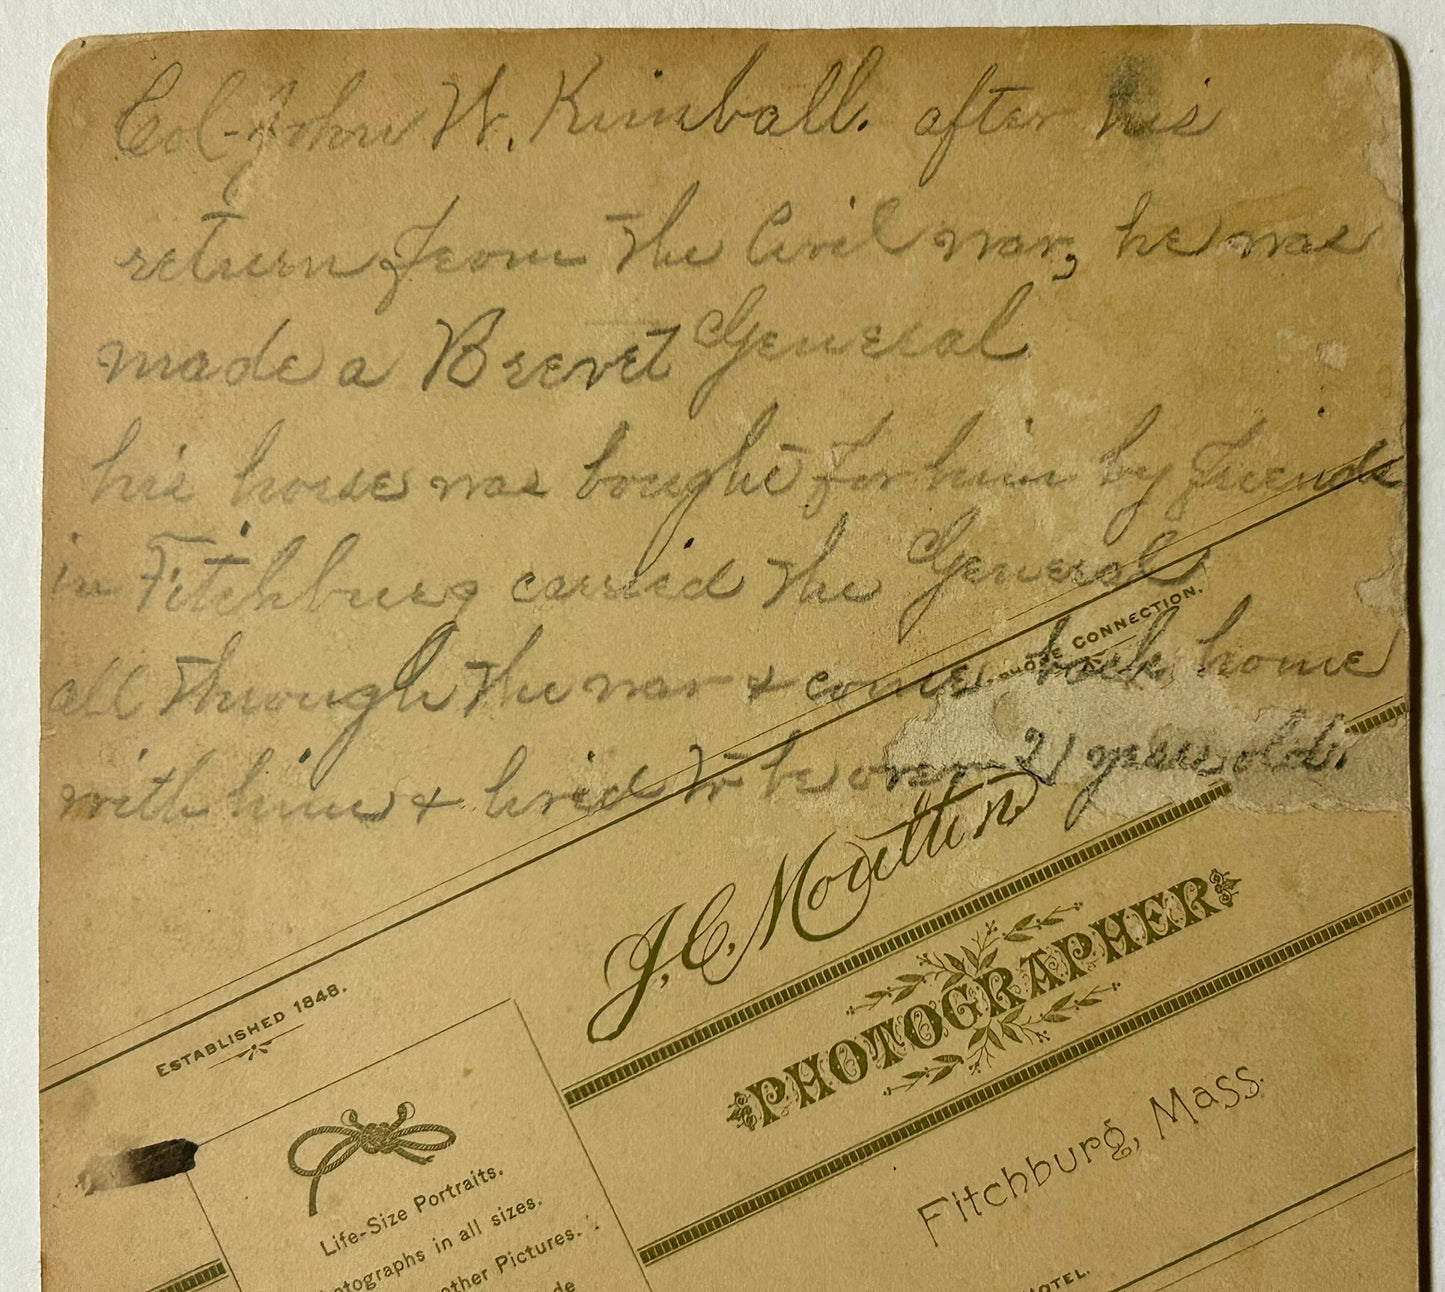 Col- John W. Kimball. after his
return from the Civil war, he was
made a Brevet General
his horse was bought for him by friends
in Fitchburg carried the General
all through the war & come back home
with him & lived to be over 21 years old.
ESTABLISHED 1848.
CONNECTION.
J. C. Moulton
PHOTOGRAPHER
Fitchburg, Mass.
Life-Size Portraits.
otographs in all sizes.
other Pictures.
de
HOTEL.